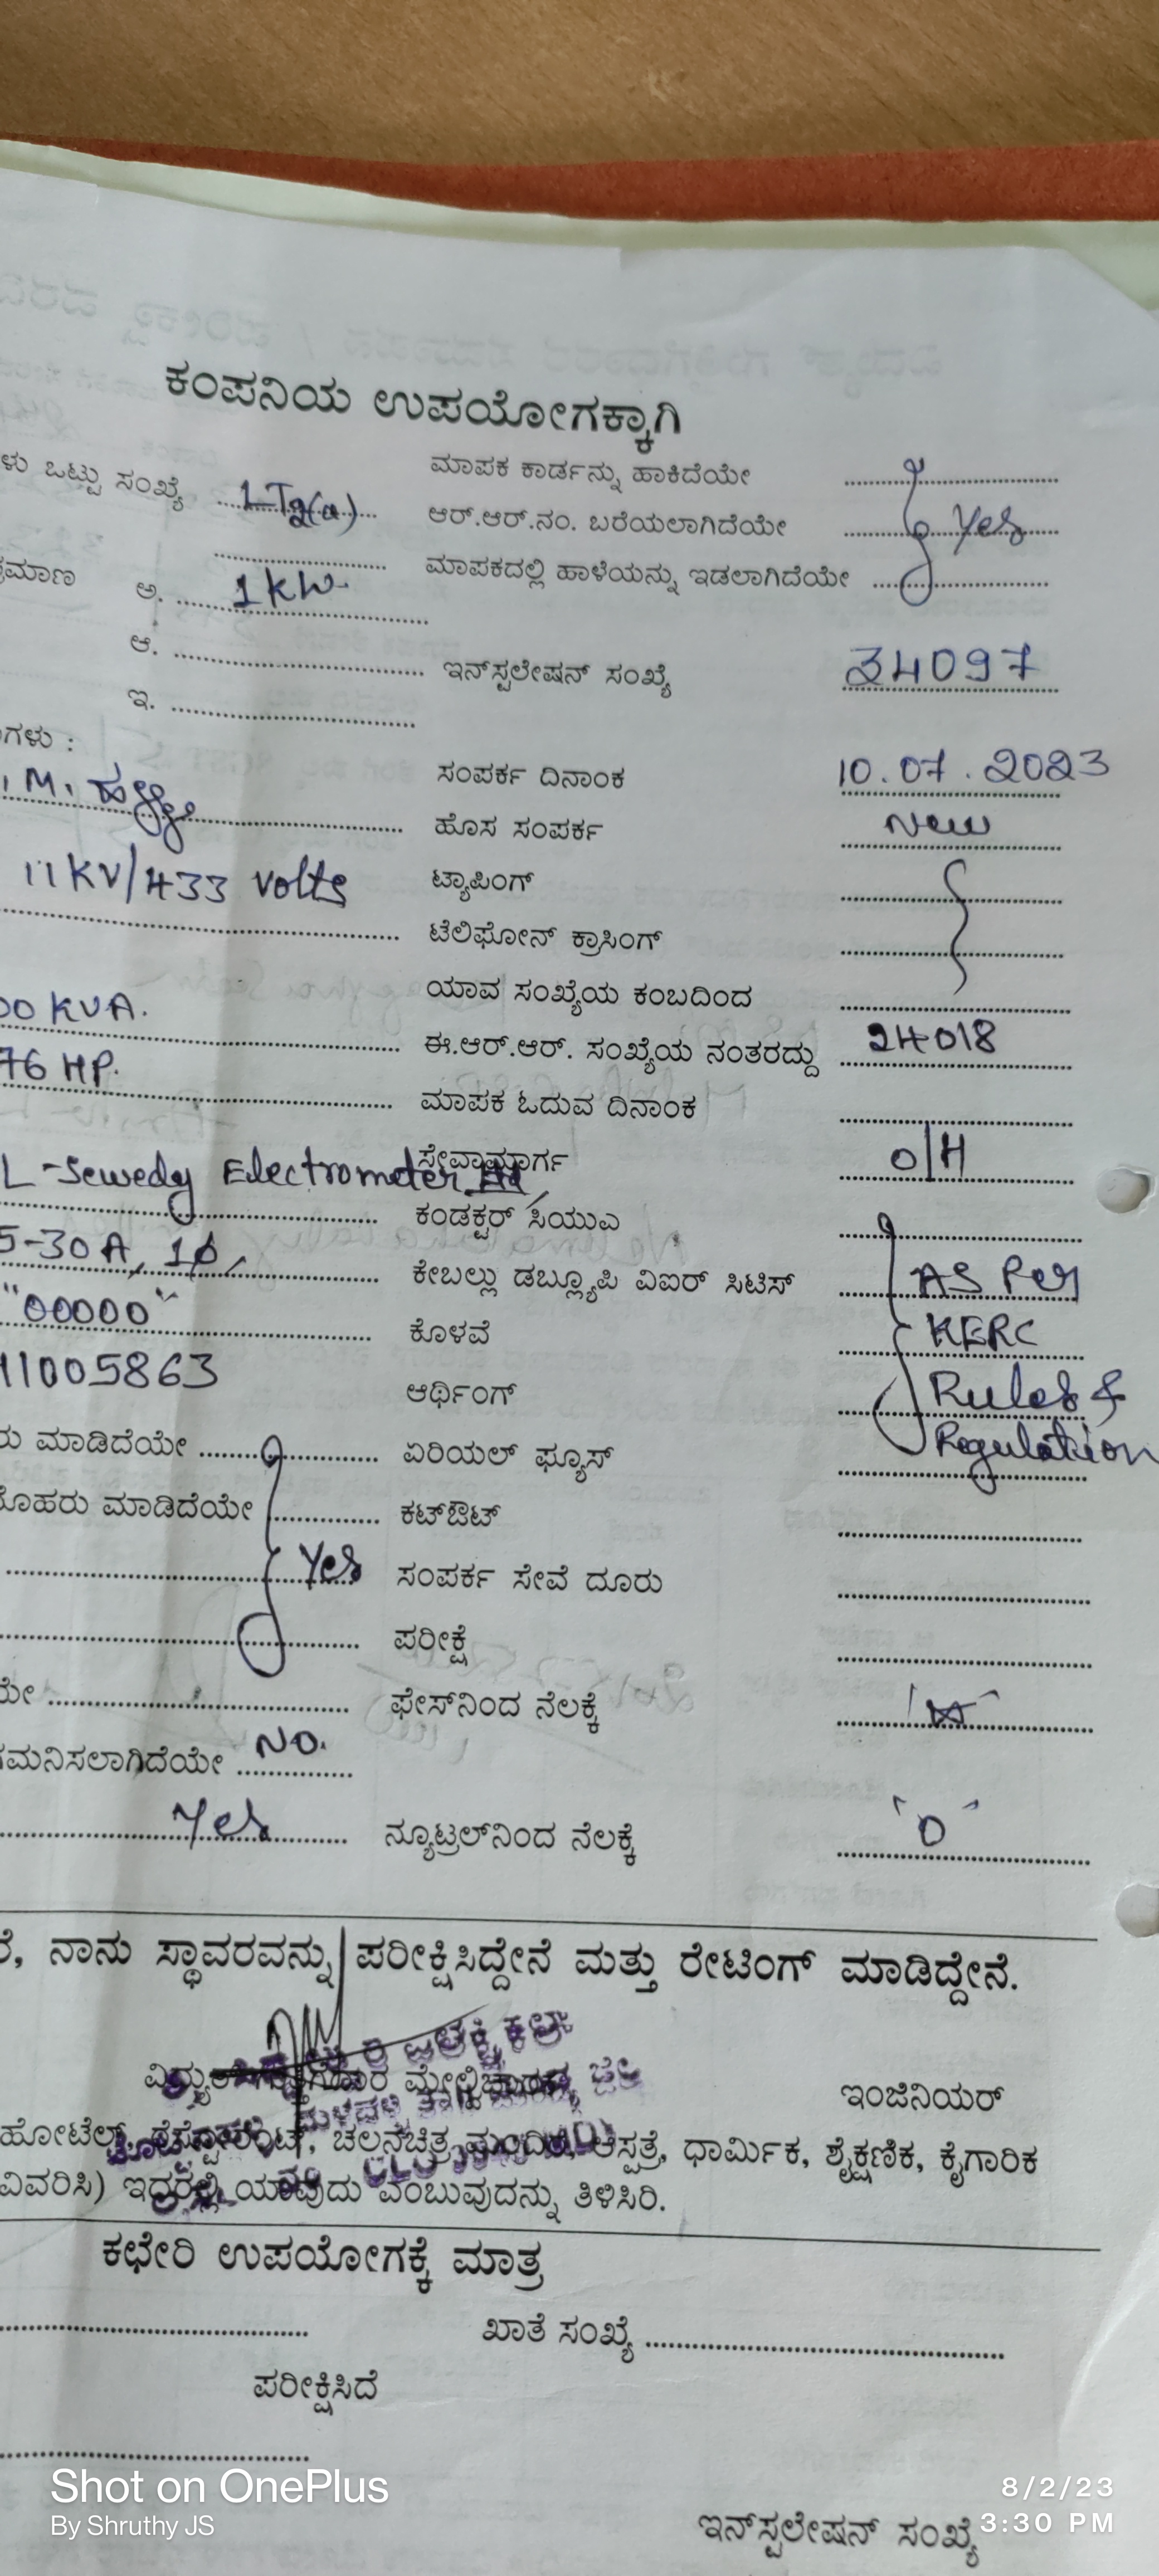 ಕಂಪನಿಯ ಉಪಯೋಗಕ್ಕಾಗಿ
ಳು ಒಟ್ಟು ಸಂಖ್ಯೆ LT2(a) ಮಾಪಕ ಕಾರ್ಡನ್ನು ಹಾಕಿದೆಯೇ
ಆರ್.ಆರ್.ನಂ. ಬರೆಯಲಾಗಿದೆಯೇ Yes
ಮಾಪಕದಲ್ಲಿ ಹಾಳೆಯನ್ನು ಇಡಲಾಗಿದೆಯೇ
ಪ್ರಮಾಣ ಅ. 1 KW
ಆ. ಇನ್‌ಸ್ಟಲೇಷನ್ ಸಂಖ್ಯೆ 34097
ಇ.
ಗಳು :
ಸಂಪರ್ಕ ದಿನಾಂಕ 10.07.2023
M. ಹಳ್ಳಿ ಹೊಸ ಸಂಪರ್ಕ New
11KV/433 Volts ಟ್ಯಾಪಿಂಗ್
ಟೆಲಿಫೋನ್ ಕ್ರಾಸಿಂಗ್
ಯಾವ ಸಂಖ್ಯೆಯ ಕಂಬದಿಂದ
00 KVA. ಈ.ಆರ್.ಆರ್. ಸಂಖ್ಯೆಯ ನಂತರದ್ದು 24018
76 HP. ಮಾಪಕ ಓದುವ ದಿನಾಂಕ
L-Sewedy Electrometer ಸೇವಾಮಾರ್ಗ O/H
ಕಂಡಕ್ಟರ್ ಸಿಯುಎ
5-30A, 1ϕ, ಕೇಬಲ್ಲು ಡಬ್ಲ್ಯೂಪಿ ವಿಐರ್ ಸಿಟಿಸ್ AS Per
"00000" ಕೊಳವೆ KERC
11005863 ಆರ್ಥಿಂಗ್ Rules &
ರು ಮಾಡಿದೆಯೇ ಏರಿಯಲ್ ಫ್ಯೂಸ್ Regulation
ಮೊಹರು ಮಾಡಿದೆಯೇ ಕಟ್‌ಔಟ್
Yes ಸಂಪರ್ಕ ಸೇವೆ ದೂರು
ಪರೀಕ್ಷೆ
ಯೇ ಫೇಸ್‌ನಿಂದ ನೆಲಕ್ಕೆ
ಗಮನಿಸಲಾಗಿದೆಯೇ NO.
Yes ನ್ಯೂಟ್ರಲ್‌ನಿಂದ ನೆಲಕ್ಕೆ 'O'
ರೆ, ನಾನು ಸ್ಥಾವರವನ್ನು ಪರೀಕ್ಷಿಸಿದ್ದೇನೆ ಮತ್ತು ರೇಟಿಂಗ್ ಮಾಡಿದ್ದೇನೆ.
ಇಂಜಿನಿಯರ್
ಹೋಟೆಲ್, ರೆಸ್ಟೋರೆಂಟ್, ಚಲನಚಿತ್ರ ಮಂದಿರ, ಆಸ್ಪತ್ರೆ, ಧಾರ್ಮಿಕ, ಶೈಕ್ಷಣಿಕ, ಕೈಗಾರಿಕ
ವಿವರಿಸಿ) ಇದರಲ್ಲಿ ಯಾವುದು ಎಂಬುವುದನ್ನು ತಿಳಿಸಿರಿ.
ಕಛೇರಿ ಉಪಯೋಗಕ್ಕೆ ಮಾತ್ರ
ಖಾತೆ ಸಂಖ್ಯೆ
ಪರೀಕ್ಷಿಸಿದೆ
Shot on OnePlus
By Shruthy JS
8/2/23
3:30 PM
ಇನ್‌ಸ್ಟಲೇಷನ್ ಸಂಖ್ಯೆ